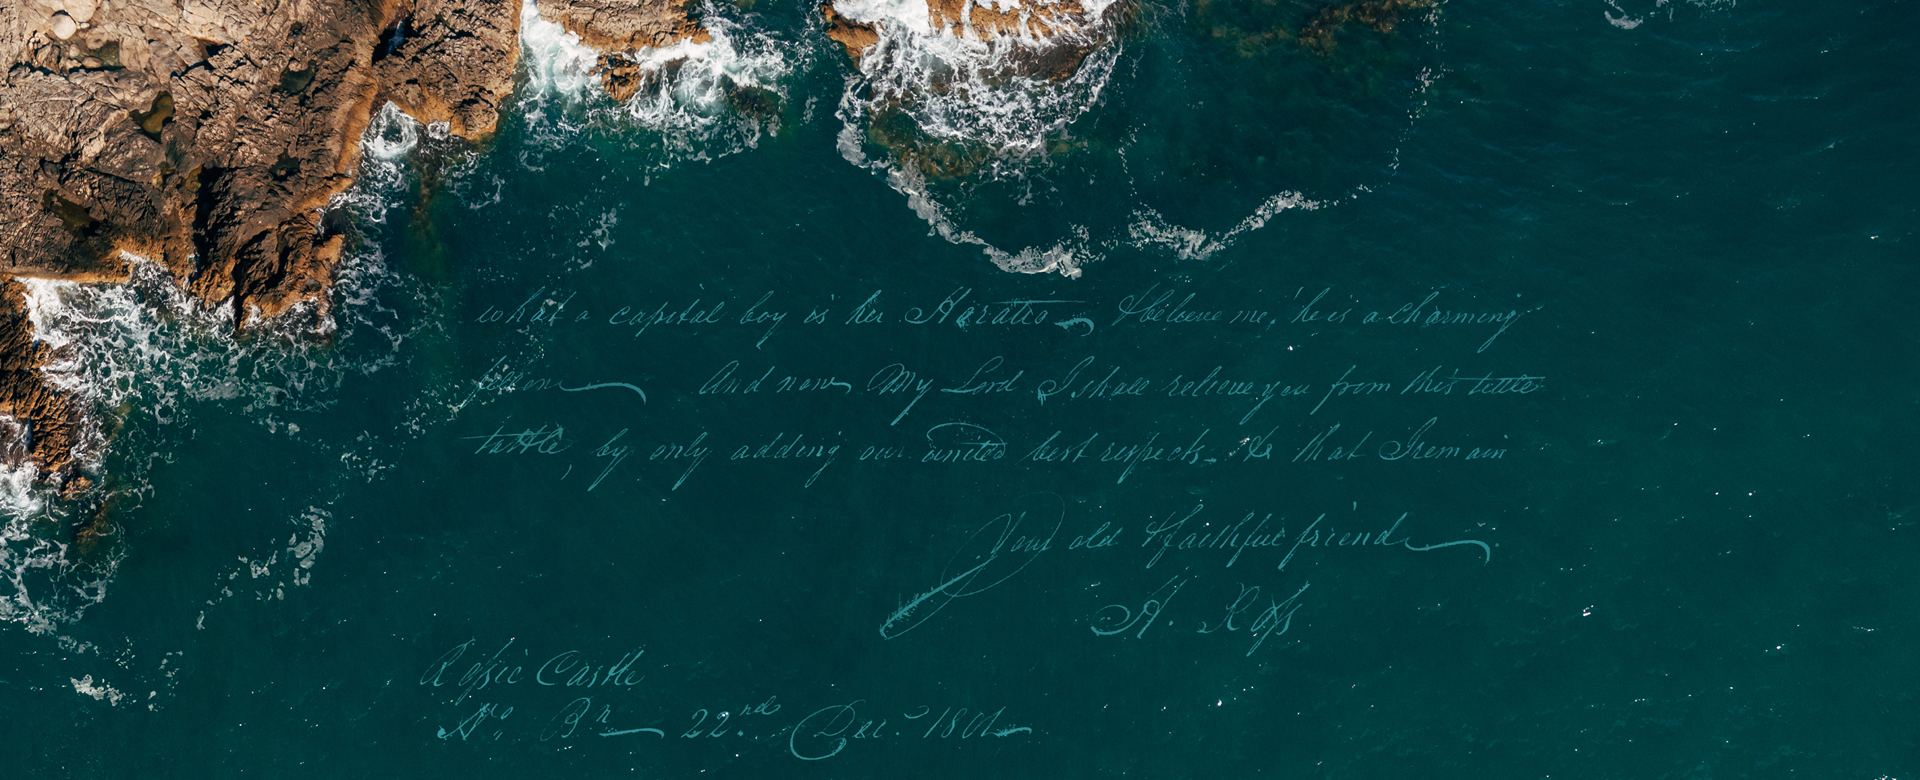 what a capital boy is her Horatio — I believe me, he is a charming
fellow — And now My Lord I shall relieve you from this tittle
tattle, by only adding our united best respects — & that I remain
Your old & faithful friend —
H. Roſs
Roſsie Castle
No. Bn — 22.nd Decr 1801 —